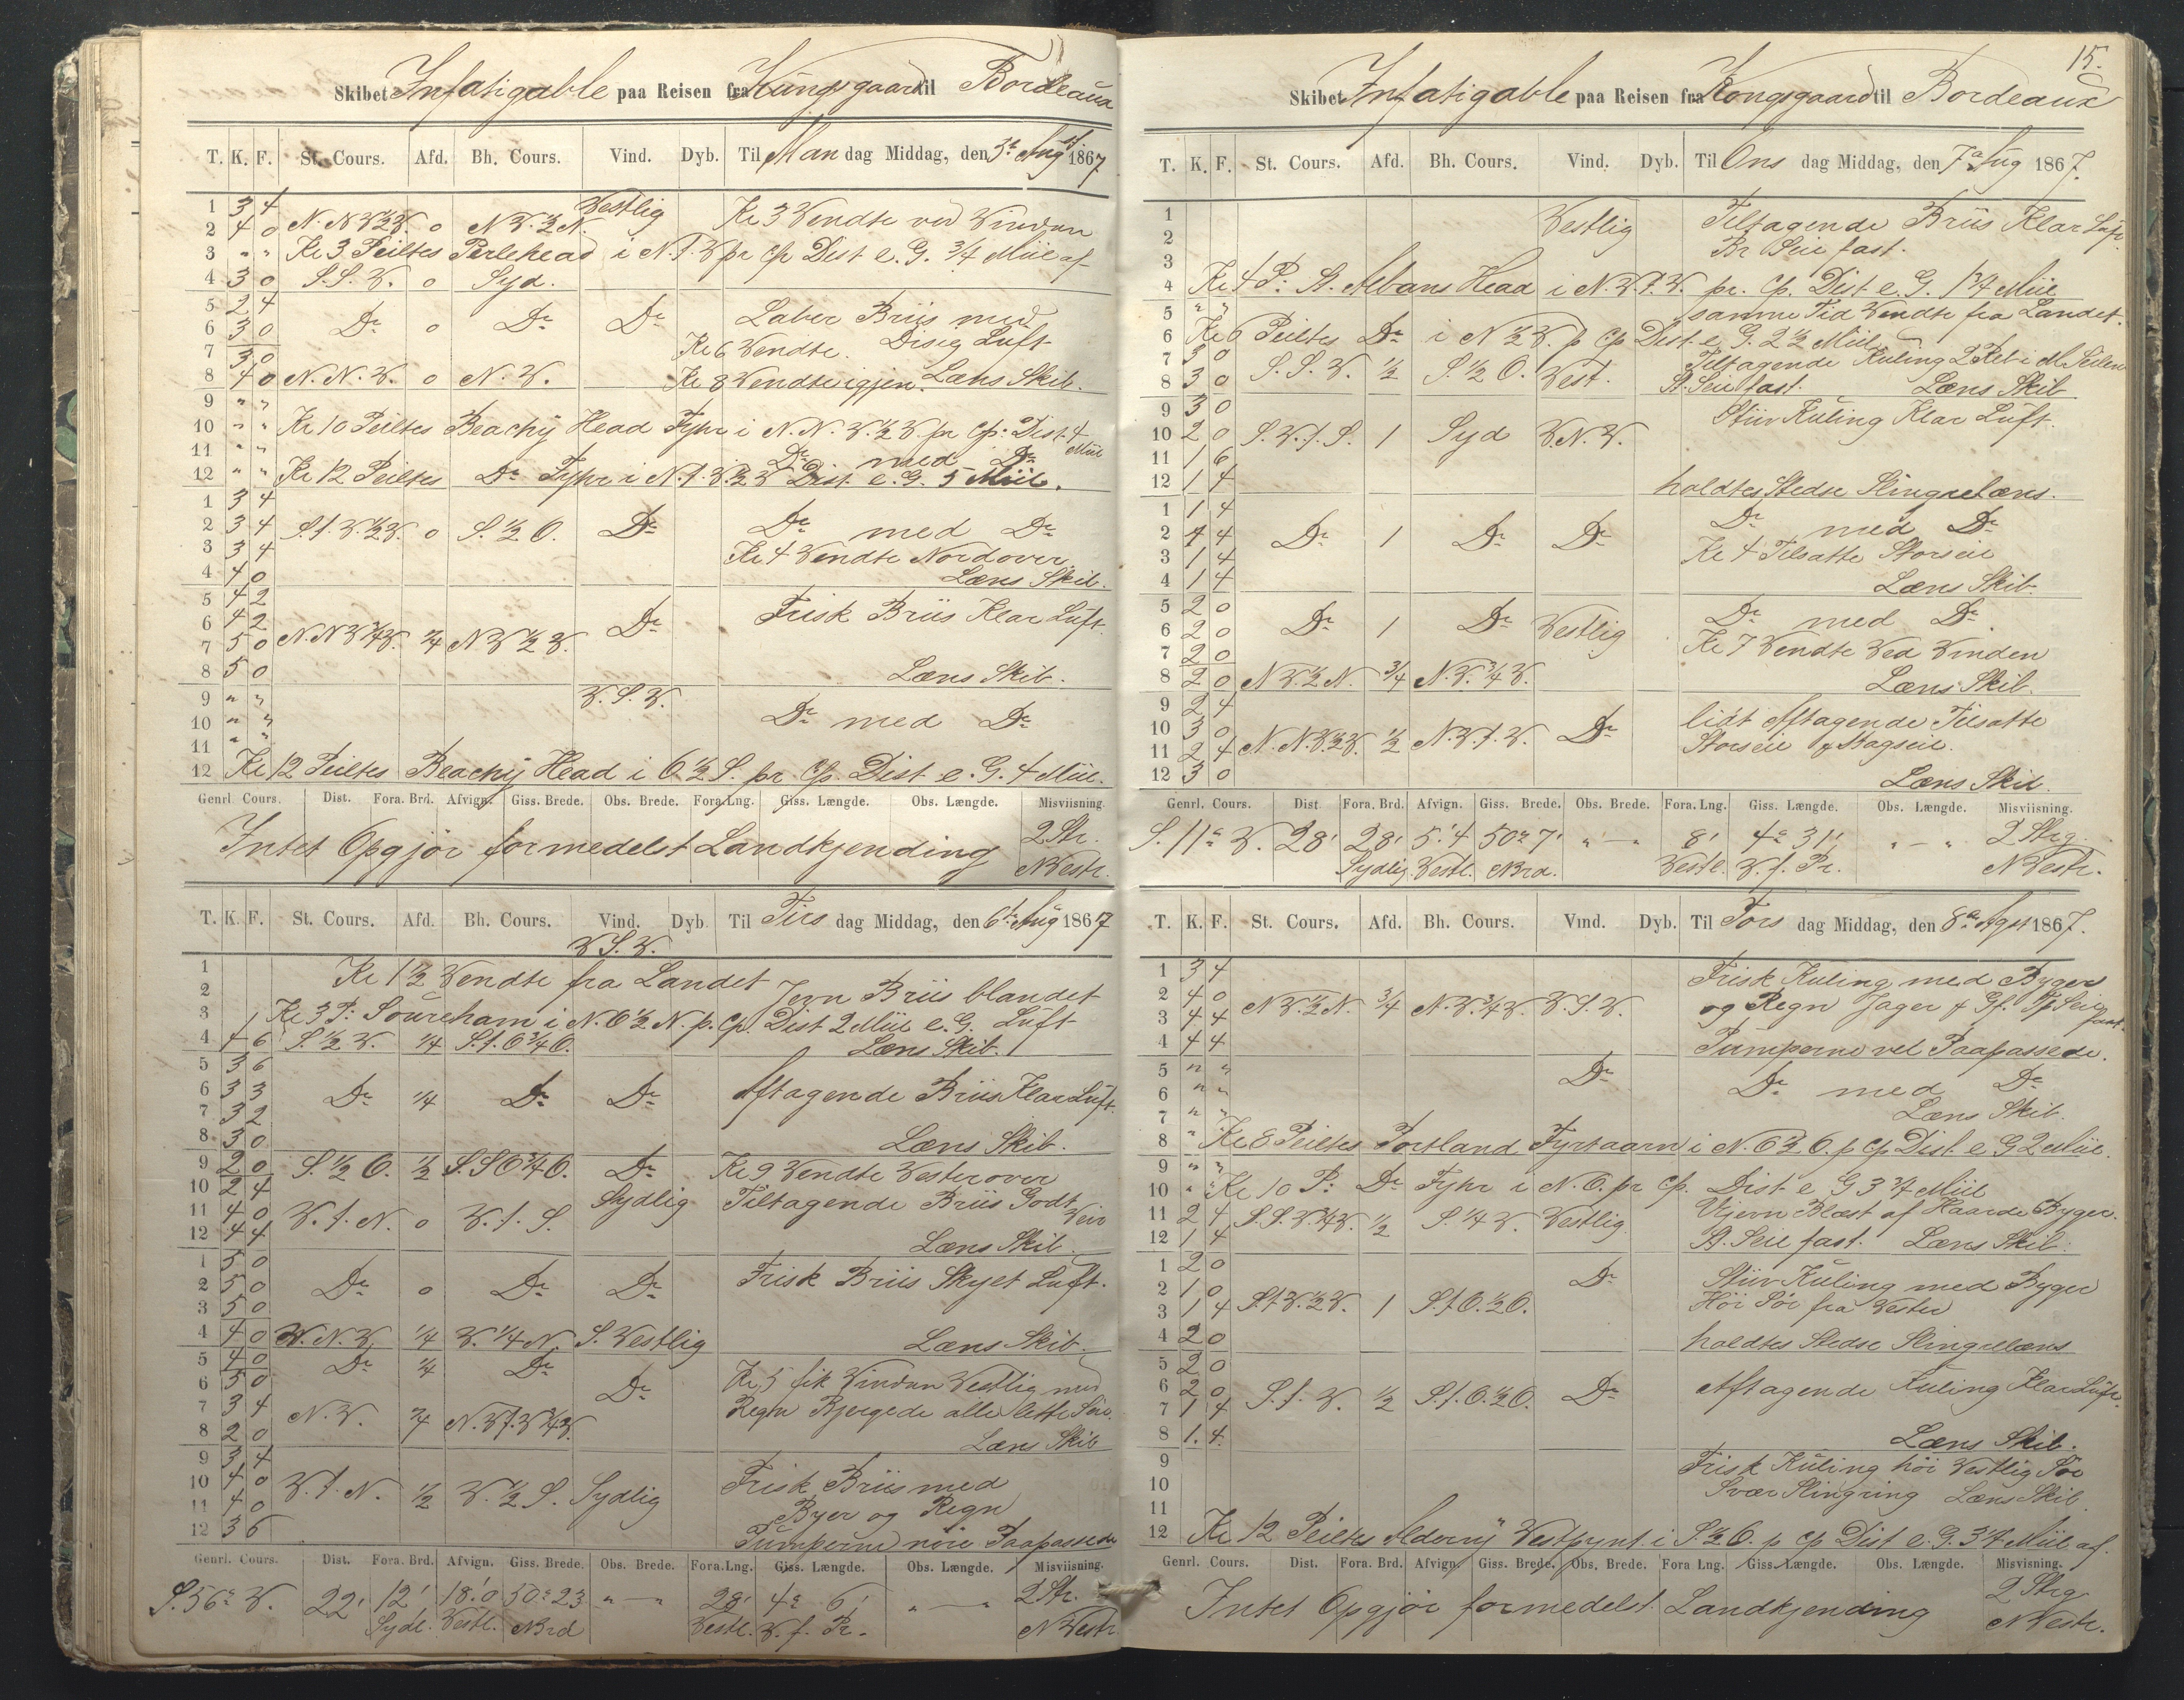 Skibet Infatigable paa Reisen fra Kungsgaard til Bordeaux
T. K. F. St. Cours. Afd. Bh. Cours. Vind. Dyb. Til Man dag Middag, den 5te Aug 1867
1 3 4 Vestlig Kl 3 Vendte ved Vinden
2 4 0 N.N.V.½V. 0 N.V.½N.
3 " " Kl 3 Peiltes Perlehead i N.t.V pr Cp Dist e. G. ¾ Miil af
4 3 0 S.S.V. 0 Syd.
5 2 4 Laber Briis med
6 3 0 Do 0 Do Do Diseg Luft
7 3 0 Kl 6 Vendte.
8 4 0 N.N.V. 0 N.V. Kl 8 Vendte igjen. Læns Skib.
9 " "
10 " " Kl 10 Peiltes Beachy Head Fyhr i N.N.V.½V. pr Cp: Dist 4 Miil
11 " " Do med Do
12 " " Kl 12 Peiltes Do Fyhr i N.t.V.½V Dist. e. G. 5 Miil.
1 3 4
2 3 4 S.t.V.½V. 0 S.½O. Do Do med Do
3 3 4 Kl 4 Vendte Nordover
4 4 0 Læns Skib.
5 4 2 Frisk Briis Klar Luft.
6 4 2 Do
7 5 0 N.N.V¾V. ¼ N.V½V.
8 5 0 Læns Skib.
9 " " V.S.V.
10 " " Do med Do
11 " "
12 Kl 12 Peiltes Beachy Head i O½S. pr. Cp. Dist e. G. 4 Miil.
Genrl. Cours. Dist. Fora. Brd. Afvign. Giss. Brede. Obs. Brede. Fora. Lng. Giss. Længde. Obs. Længde. Misviisning.
Intet Opgjör formedelst Landkjending 2 Str.
NVestr.
T. K. F. St. Cours. Afd. Bh. Cours. Vind. Dyb Til Tirs dag Middag, den 6te Aug 1867
V.S.V.
1 Kl 1½ Vendte fra Landet
2 Jevn Briis blandet
3 Kl 3 P: Soureham i N.O½N. p. Cp. Dist 2 Miil e. G. Luft
4 4 6 S.½V. ¼ S.t.O¾O. Læns Skib.
5 3 6
6 3 3 Do ¼ Do Do Aftagende Briis Klar Luft.
7 3 2
8 3 0 Læns Skib.
9 2 0 S.½O. ½ S.SO¾O. Do Kl 9 Vendte Vesterover
10 2 4 Sydlig Tiltagende Briis Godt Veir
11 4 0 V.t.N. 0 V.t.S.
12 4 4 Læns Skib.
1 5 0
2 5 0 Do 0 Do Do Frisk Briis Skyet Luft.
3 5 0
4 4 0 V.N.V. ¼ V.¼N. S.Vestlig Læns Skib.
5 4 0 Do ¼ Do Kl 5 fik Vinden Vestlig med
6 5 0 Do
7 3 4 Regn Bjergede alle lette Seil.
8 2 0 N.V. ¾ N.V.t.V¾V. Læns Skib
9 3 4
10 4 0 V.t.N. ½ V.½S. Sydlig Frisk Briis med
11 4 0 Byer og Regn
12 3 6 Pumperne nöie Paapassede
Genrl. Cours. Dist. Fora. Brd. Afvign. Giss. Brede. Obs. Brede. Fora. Lng. Giss. Længde. Obs. Længde. Misviisning.
S.56° V. 22' 12' 18'.0 50° 23 " — " 28' 4° 6' " — " 2 Str.
Sydl. Vestl. NBrd Vestl. V. f. Pr. NVestr
15.
Skibet Infatigable paa Reisen fra Kongsgaard til Bordeaux
T. K. F. St. Cours. Afd. Bh. Cours. Vind. Dyb. Til Ons dag Middag, den 7de Aug 1867.
1 Vestlig Tiltagende Briis Klar Luft
2 Br Seil fast.
3
4 Kl 4 P: St. Albans Head i N.V.t.V. pr. Cp. Dist. e. G. 1¾ Miil
5 " " samme Tid Vendte fra Landet.
6 Kl 6 Peiltes Do i N½V. p Cp Dist e. G. 2½ Miil
7 3 0 Tiltagende Kuling 2 Reb i M. Seilene
8 3 0 S.S.V. ½ S.½O. Vest. St. Seil fast. Læns Skib
9 3 0 Stiiv Kuling Klar Luft.
10 2 0 S.V.t.S. 1 Syd V.N.V.
11 1 6
12 1 4 holdtes Stedse Slingrelæns.
1 1 4 Do med Do
2 1 4 Do 1 Do Do
3 1 4 Kl 4 Tilsatte Storseil
4 1 4 Læns Skib.
5 2 0 Do med Do
6 2 0 Do 1 Do Vestlig
7 2 0 Kl 7 Vendte Ved Vinden
8 2 0 N.V.½N. ¾ N.V.¾V. Læns Skib.
9 2 4 lidt Aftagende Tilsatte
10 3 0 Do
11 2 4 N.N.V.½V. ½ N.V.t.V. Storseil & Bagseil.
12 3 0 Læns Skib.
Genrl. Cours. Dist Fora. Brd. Afvign. Giss. Brede. Obs. Brede. Fora. Lng. Giss. Længde. Obs. Længde. Misviisning.
S. 11° V. 28' 28' 5'.4 50° 7' " — " 8' 4° 31' " — " 2 Strg.
Sydlig. Vestl. NBrd. Vestl. V. f. Pr. NVestr.
T. K. F. St. Cours. Afd. Bh. Cours. Vind. Dyb. Til Tors dag Middag, den 8de Agst 1867.
1 3 4 Frisk Kuling med Byger
2 4 0 N.V.½N. ¾ N.V.¾V. V.S.V. og Regn Jager & Gf. Tp Seil fast.
3 4 4
4 4 4 Pumperne vel Paapassede.
5 " " Do
6 " " Do med Do
7 " " Læns Skib.
8 " Kl 8 Peiltes Portland Fyrtaarn i N.O½O. p Cp Dist e. G 2 Miil.
9 " "
10 " " Kl 10 P: Do Fyhr i N.O. pr Cp. Dist e. G 3¾ Miil
11 2 4 S.S.V.¾V. ½ S.¼V. Vestlig. Ujevn Blæst af Haarde Byger.
12 1 4 St. Seil fast. Læns Skib.
1 2 0 Do Stiiv Kuling med Byger
2 1 0
3 1 4 S.t.V.½V. 1 S.t.O.½O. Höi Sö fra Vester
4 2 0 holdtes Stedse Slingrelæns
5 2 0
6 2 0 S.t.V. ½ S.t.O.½O. Do Aftagende Kuling Klar Luft.
7 1 4
8 1. 4. Læns Skib.
9 Frisk Kuling höi Vestlig Sö
10 Svær Slingring Læns Skib
11
12 Kl 12 Peiltes Alderny Vestpynt i S½O. p Cp Dist e. G. 3¾ Miil af.
Genrl. Cours. Dist. Fora. Brd. Afvign Giss. Brede. Obs. Brede. Fora Lng. Giss. Længde. Obs. Længde. Misvisning.
Intet Opgjör formedelst Landkjending 2 Strg
NVestr.